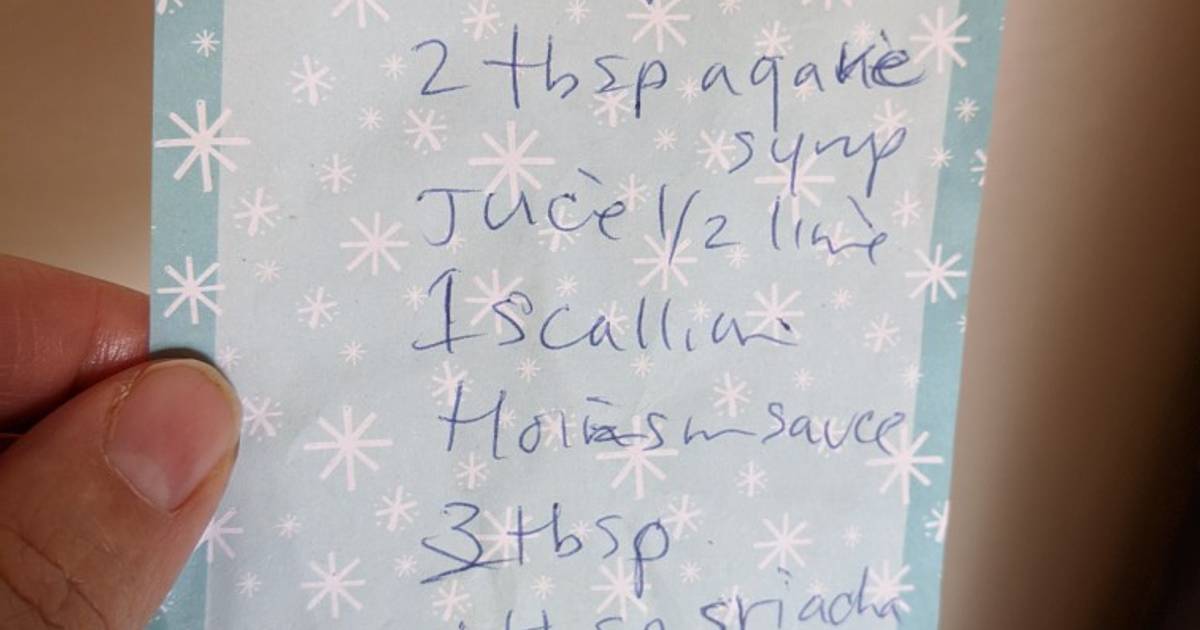 2 tbsp agave
syrup
Juce 1/2 lime
1 scallion
Hoisin sauce
3 tbsp
tbsp sriacha